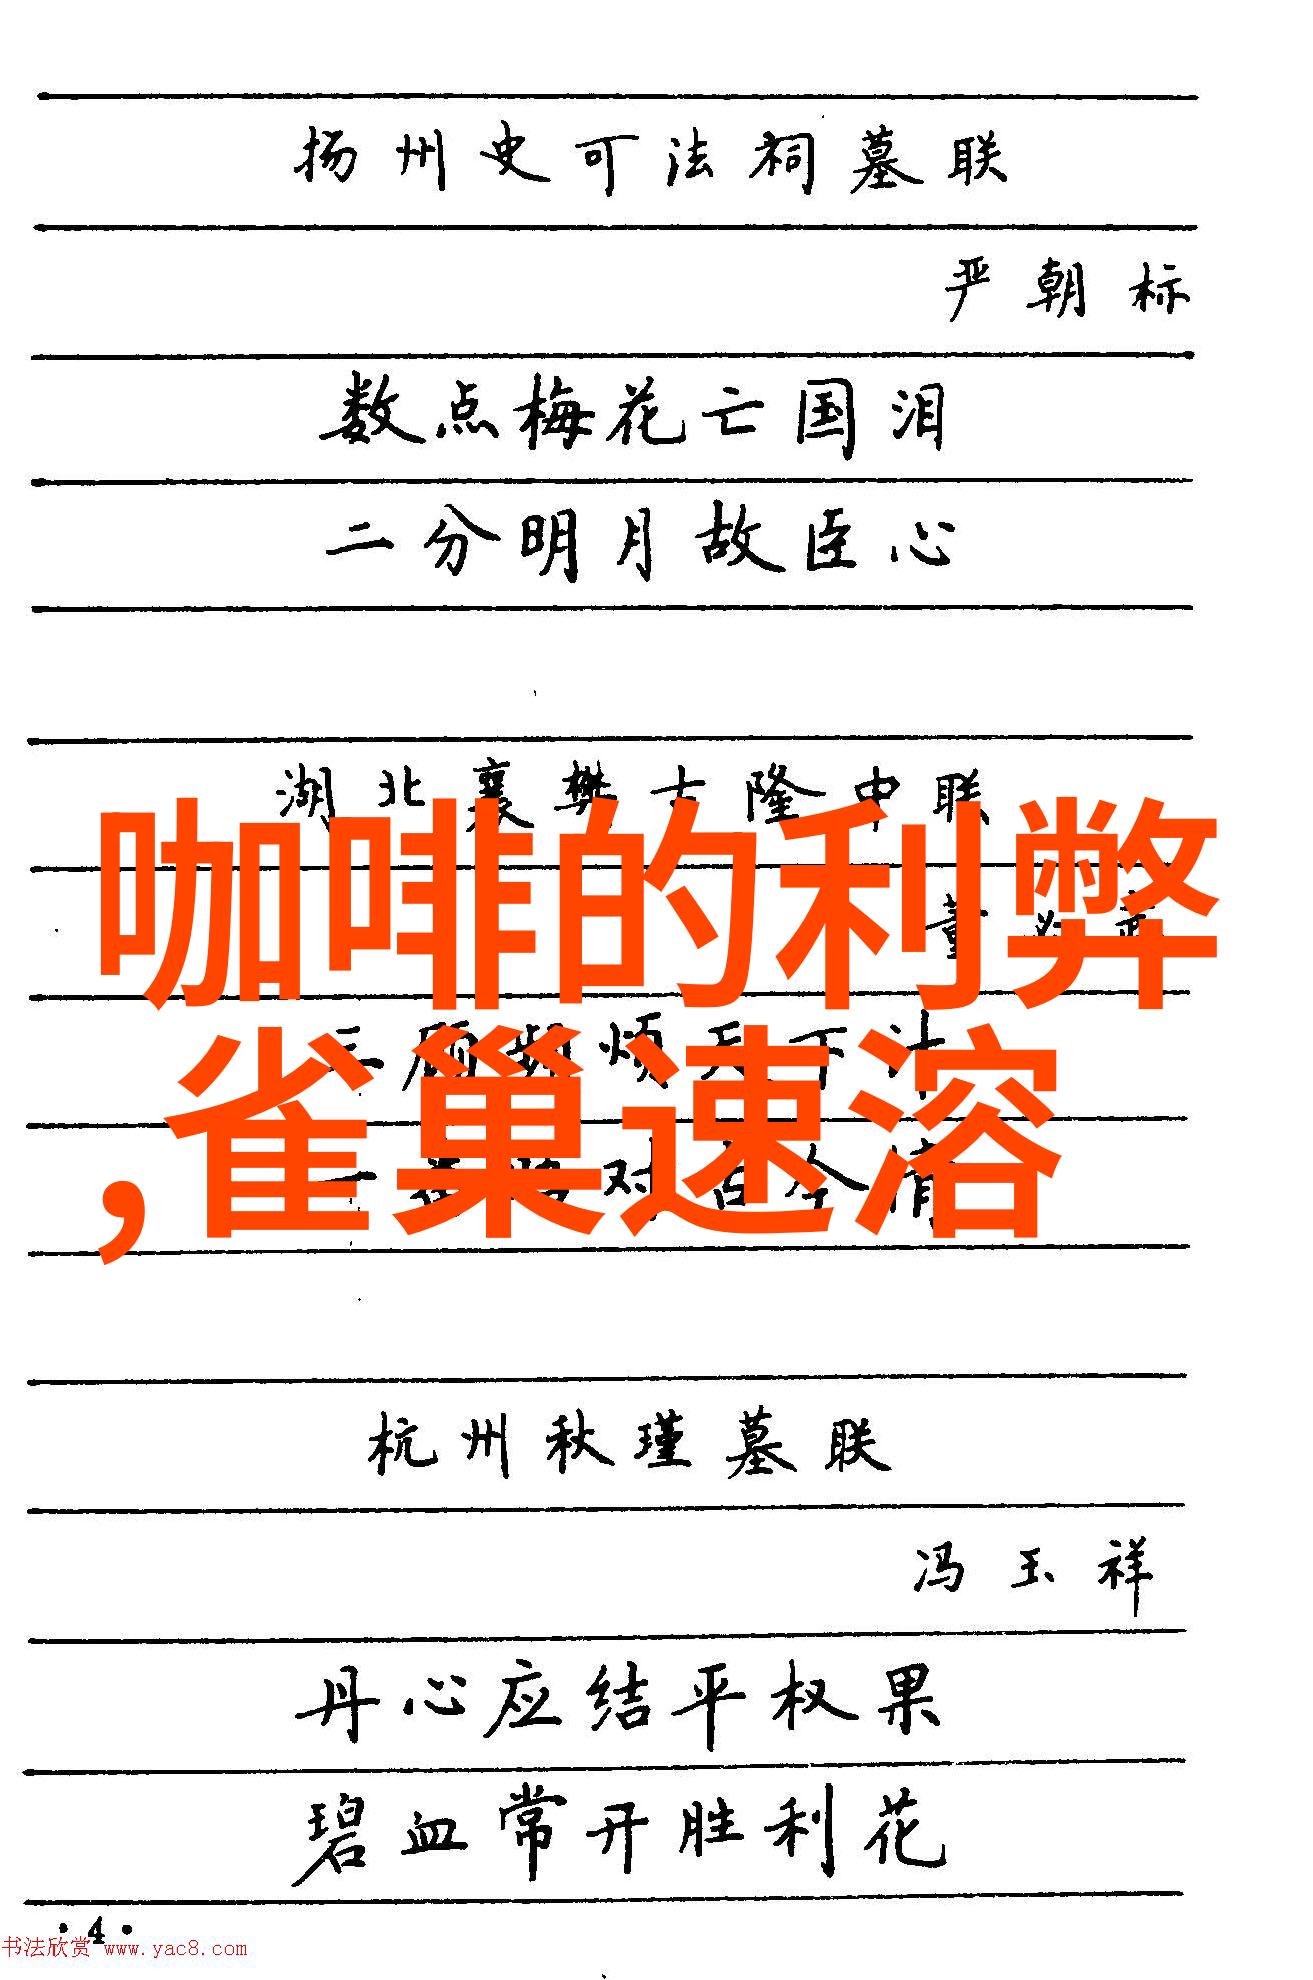 扬州史可法祠墓联
严朝标
数点梅花亡国泪
二分明月故臣心
湖北襄樊古隆中联
咖啡的利弊
董必武
三顾频烦天下计
,雀巢速溶
一番晤对古今情
杭州秋瑾墓联
冯玉祥
丹心应结平权果
碧血常开胜利花
·4·
书法欣赏 www.yac8.com